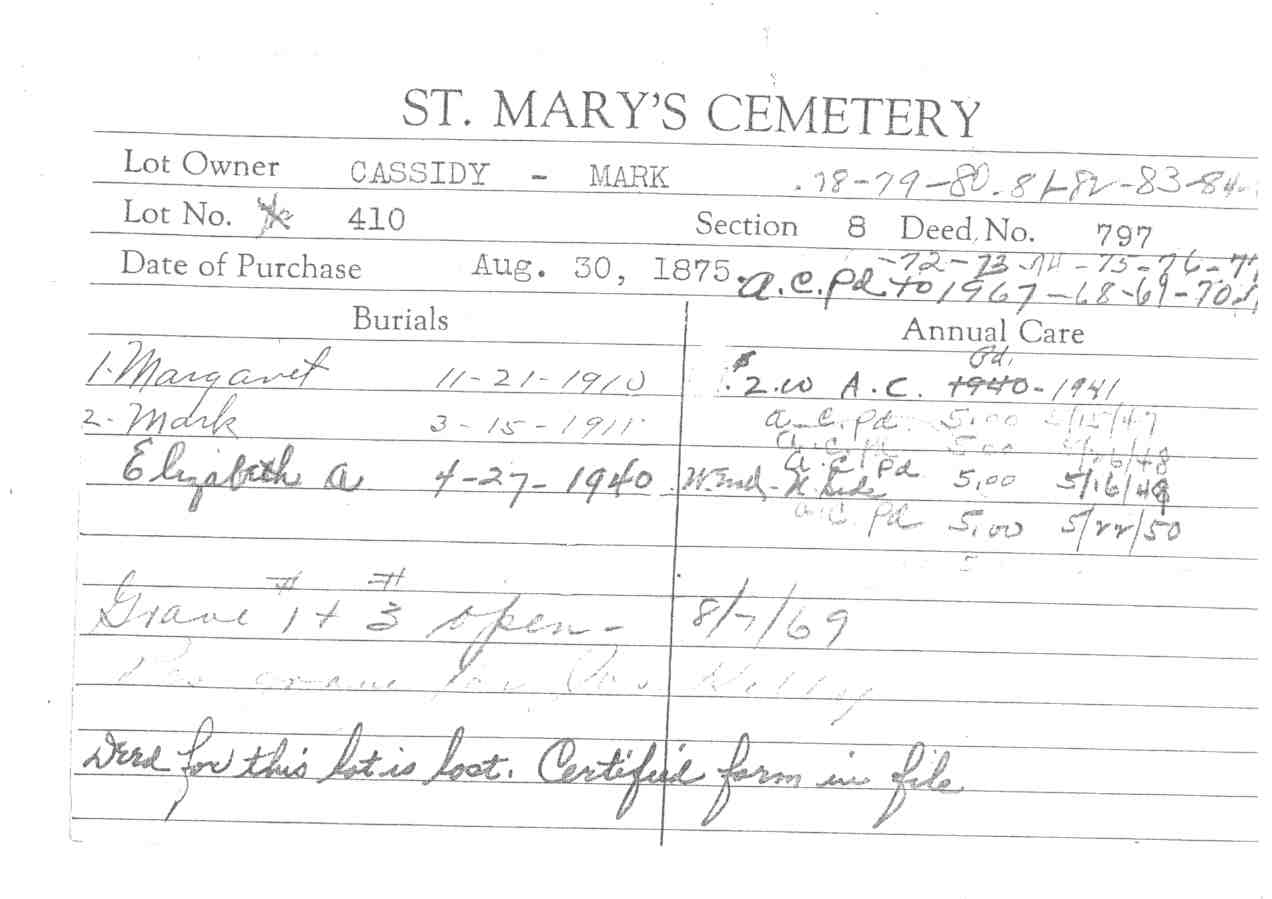 ST. MARY'S CEMETERY
Lot Owner CASSIDY - MARK 78-79-80-81-82-83-84-
Lot No. 410 Section 8 Deed No. 797
-72-73-74-75-76-77
Date of Purchase Aug. 30, 1875. a.C.Pd to 1967-68-69-70
Burials Annual Care
Pd.
1. Margaret 11-21-1910 $2.00 A.C. 1940-1941
2- Mark 3-15-1911 a.C.Pd. 5.00 /15/47
a.C.Pd 5.00 /48
a.C.Pd
Elizabeth a 4-27-1940 W. End - N. Side 5.00 5/16/49
a.C.Pd 5.00 5/22/50
Grave #1 + #3 open - 8/7/69
grave for Kelly
Deed for this lot is lost. Certified form in file